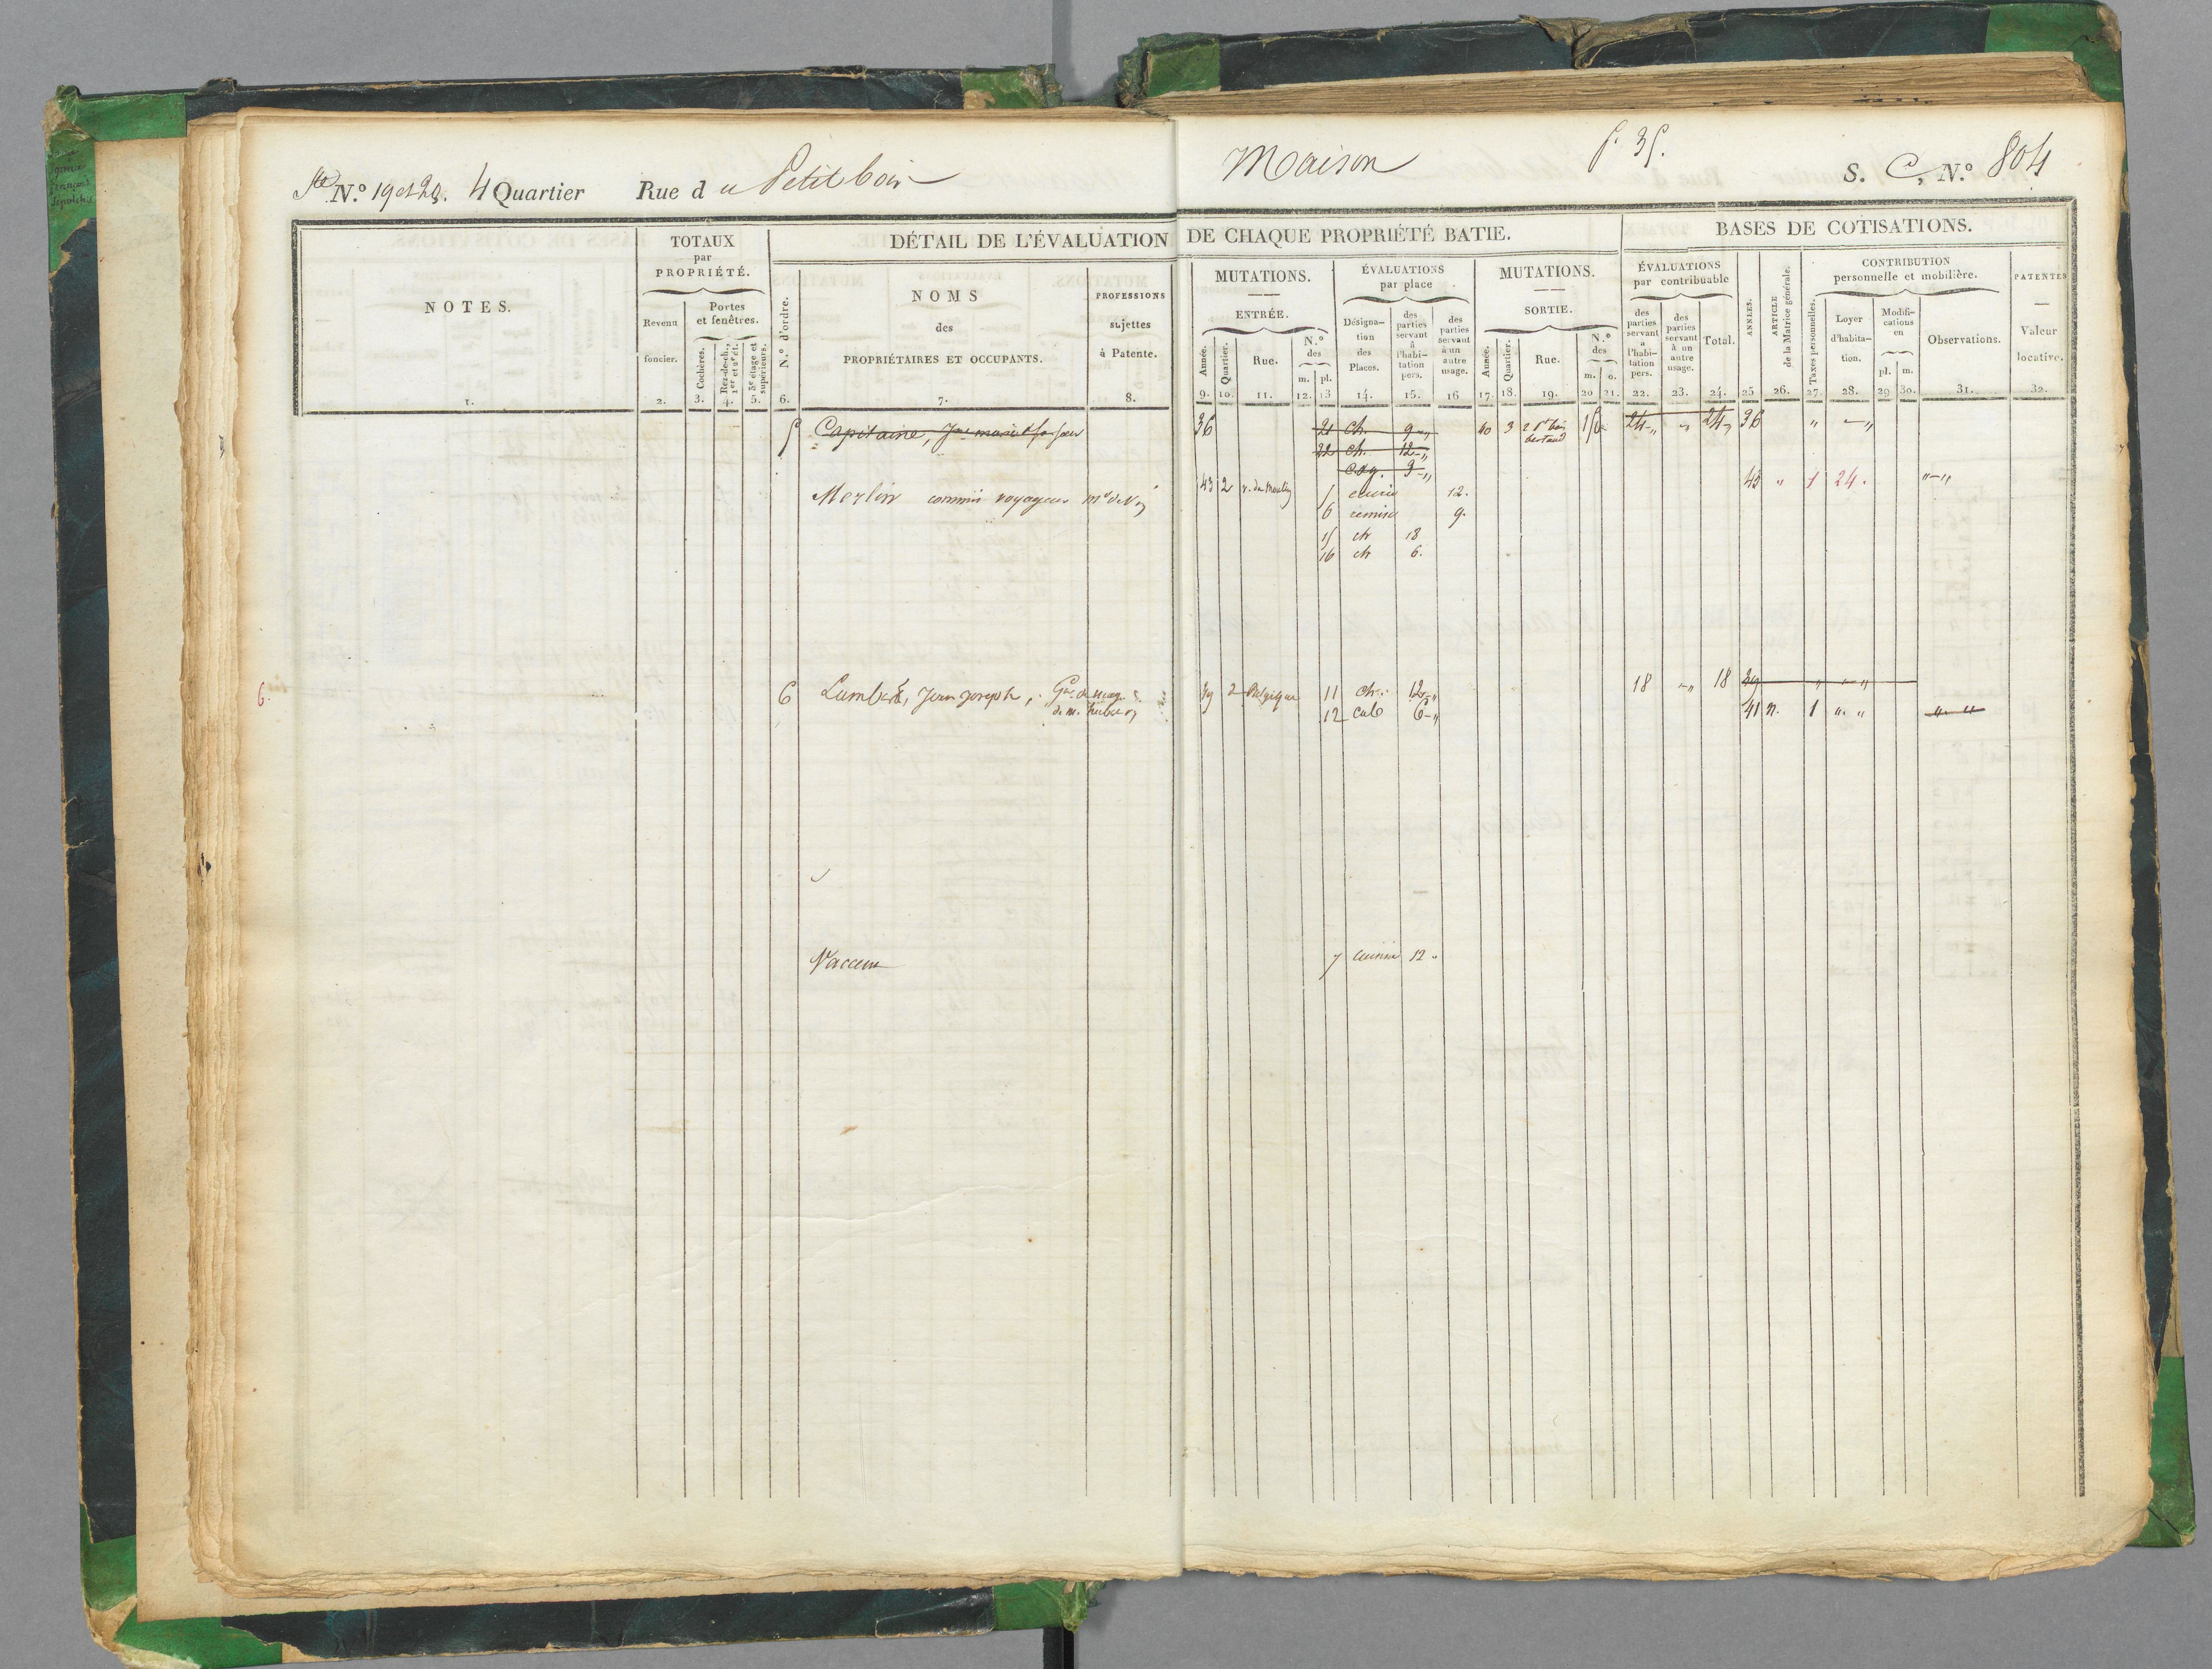 Ste N.º 19 et 20. 4 Quartier Rue d u Petit bois Maison f. 35. S. C, N.º 804
TOTAUX
par
PROPRIÉTÉ.
DÉTAIL DE L'ÉVALUATION DE CHAQUE PROPRIÉTÉ BATIE.
BASES DE COTISATIONS.
NOTES.
Revenu
foncier.
Portes
et fenêtres.
Cochères.
Rez-de-ch.,
1er et 2e ét.
3e étage et
supérieurs.
N.º d'ordre.
NOMS
des
PROPRIÉTAIRES ET OCCUPANTS.
PROFESSIONS
sujettes
à Patente.
MUTATIONS.
ENTRÉE.
Année.
Quartier.
Rue.
N.º
des
m. pl.
ÉVALUATIONS
par place
Désigna-
tion
des
Places.
des
parties
servant
à
l'habi-
tation
pers.
des
parties
servant
à un
autre
usage.
MUTATIONS.
SORTIE.
Année.
Quartier.
Rue.
N.º
des
m. o.
ÉVALUATIONS
par contribuable
des
parties
servant
à
l'habi-
tation
pers.
des
parties
servant
à un
autre
usage.
Total.
ANNÉES.
ARTICLE
de la Matrice générale.
CONTRIBUTION
personnelle et mobilière.
Taxes personnelles.
Loyer
d'habita-
tion.
Modifi-
cations
en
pl. m.
Observations.
PATENTES
Valeur
locative.
1. 2. 3. 4. 5. 6. 7. 8. 9. 10. 11. 12. 13 14. 15. 16 17. 18. 19. 20 21. 22. 23. 24. 25 26. 27. 28. 29 30. 31. 32.
5 Capitaine, 36 21 ch. 9-" 40 3 15 24-" " 24-" 36 " -"
22 ch. 12-"
3-"
Merlin commis voyageur 43 2 r. du Moulin 5 écurie 12. 43 " 1 24. "-"
6 remise 9.
15 ch 18
16 ch 6.
6. 6 Lambert, Jean Joseph, 39 2 Belgique 11 ch. 12-" 18 -" 18 39 " -"
12 cab 6-" 41 n. 1 ". " ". "
Vaccum 7 cuisine 12.